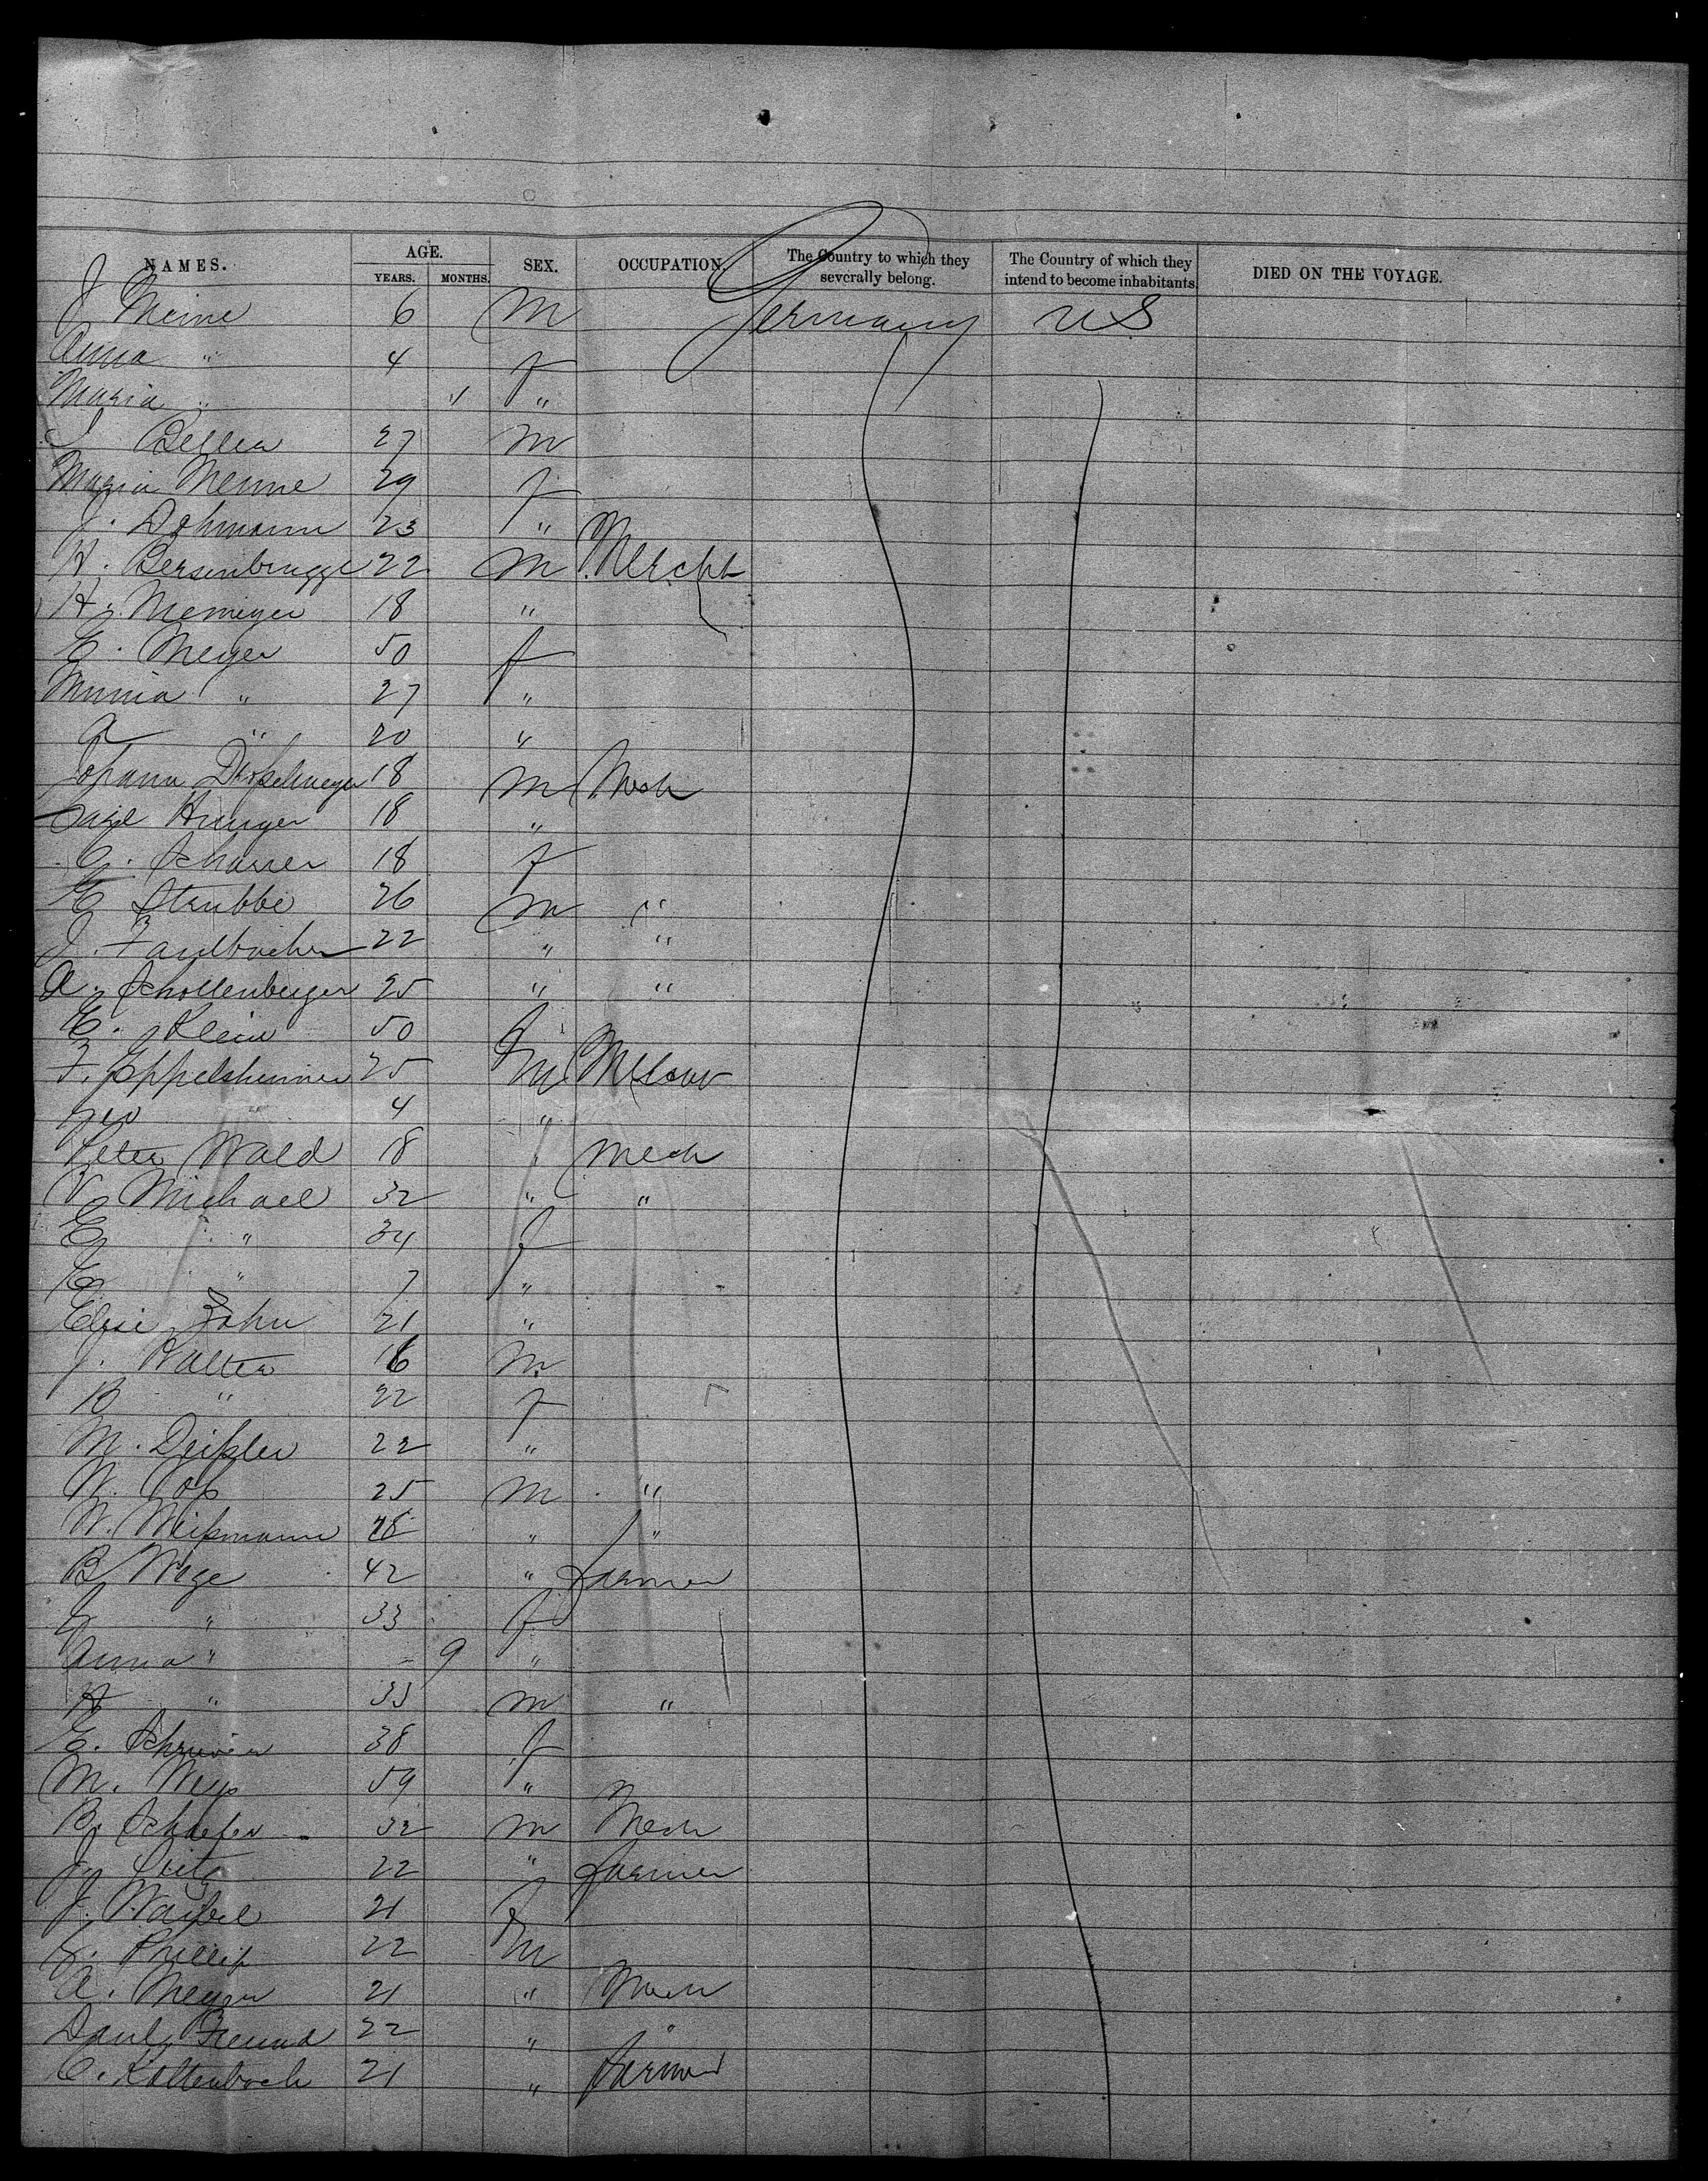 NAMES. AGE. YEARS. MONTHS. SEX. OCCUPATION. The Country to which they severally belong. The Country of which they intend to become inhabitants. DIED ON THE VOYAGE.
J Meine 6 M Germany US
Anna " 4 f
Maria " 11 "
27 m
Maria Menne 29 f
J. Dohmann 23 "
H. Bersenbrugge 22 M Mercht
H. Niemeyer 18 "
E. Meyer 50 f
" 27 "
A " 20 "
Johann 18 M Mech
Carl Hunger 18 "
C. Scharrer 18 f
E Strubbe 26 m "
J. Faulbacher 22 " "
A. Schollenberger 25 " "
E. Klein 50 f
F. Eppelsheimer 25 M
Geo 4 "
Peter Wald 18 " Mech
V Michael 32 " "
E " 34 f
E " 7 "
Elise Zahn 21 "
J. Walter 16 m
B " 22 f
M. Deißler 22 "
W. Voß 25 m "
W. Weißmann 18 " "
B Wege 42 " Farmer
E " 33 f
Anna " - 9 "
H " 33 m "
E. 38 f
M. 59 "
B. Schaefer 32 m Mech
J. 22 " Farmer
J. Waibel 21 f
J. Phillip 22 M
A. Meyer 21 " Mech
Paul Freund 22 " "
C. Kaltenbach 21 " Farmer